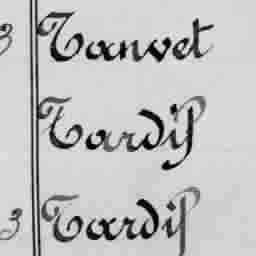 3 Tanvet
Tardif
3 Tardif